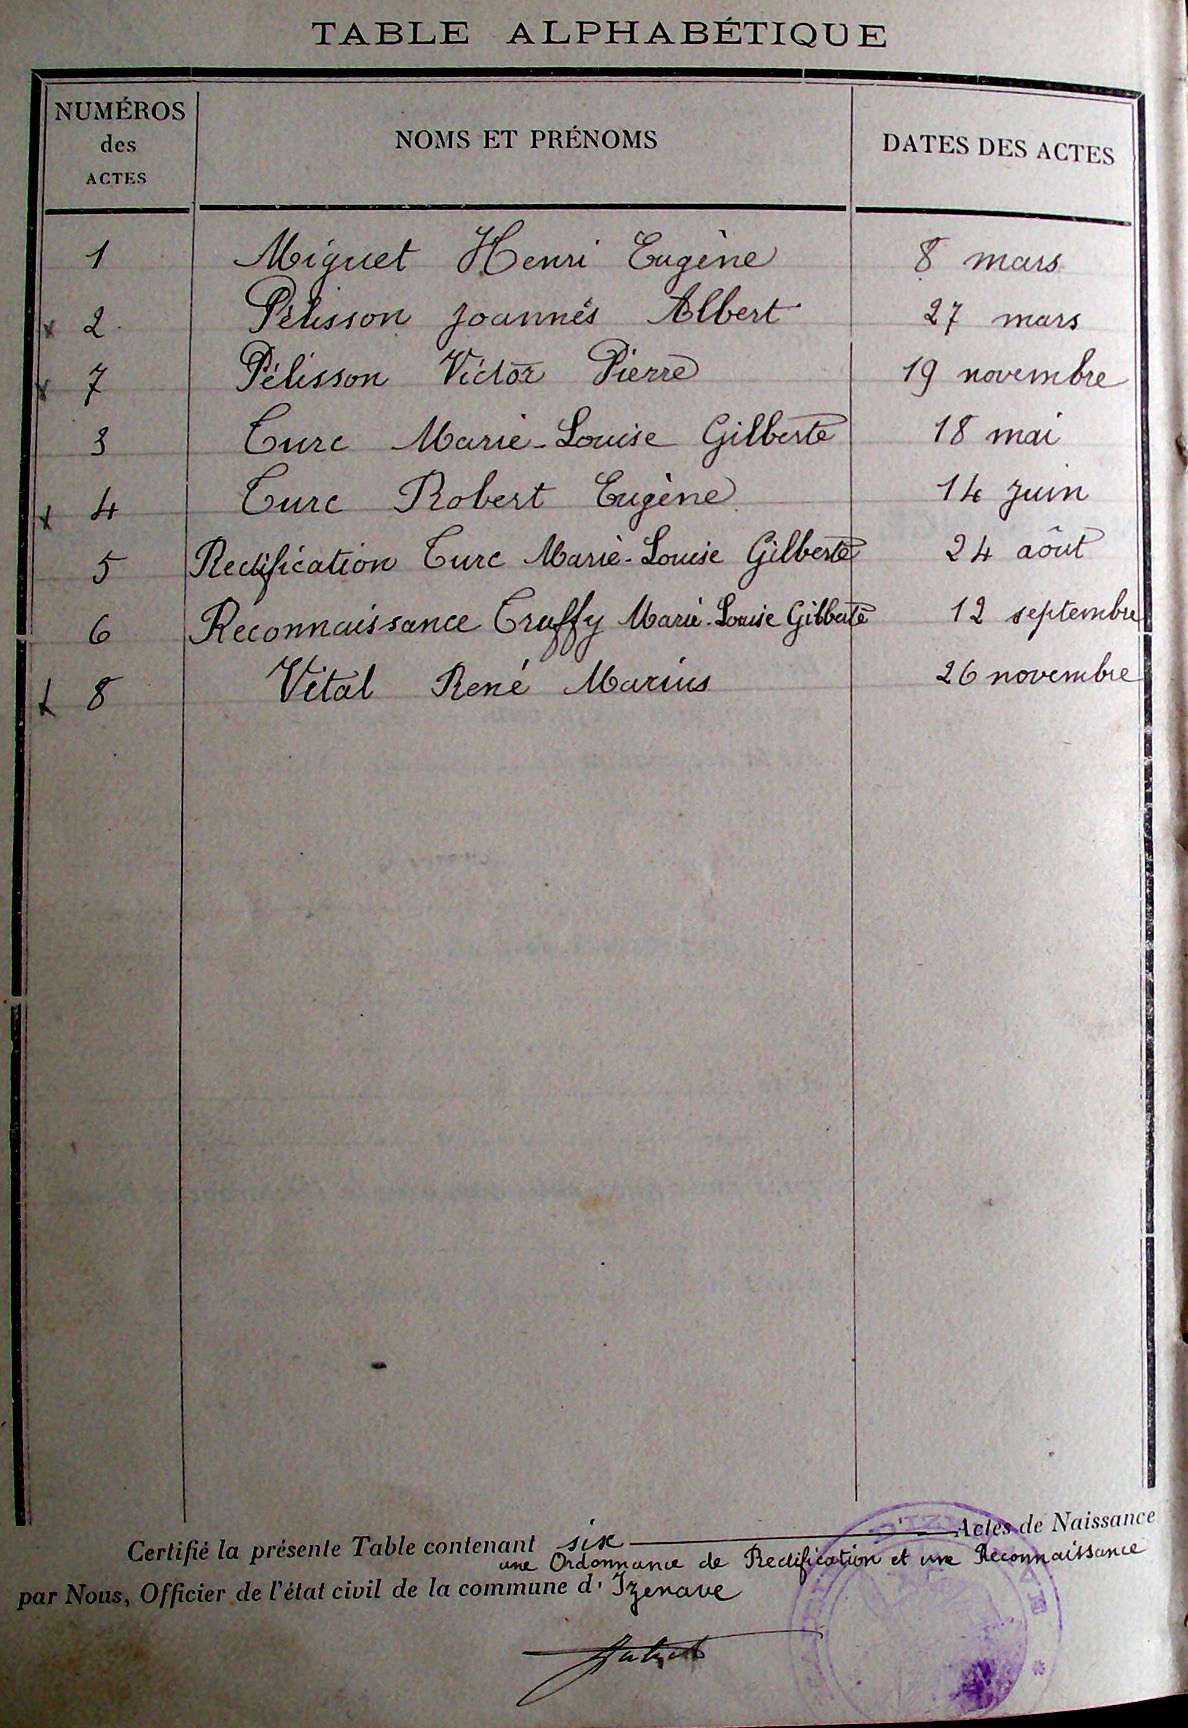 TABLE ALPHABÉTIQUE
NUMÉROS des ACTES NOMS ET PRÉNOMS DATES DES ACTES
1 Miguet Henri Eugène 8 mars
x 2 Pélisson Joannès Albert 27 mars
x 7 Pélisson Victor Pierre 19 novembre
3 Turc Marie-Louise Gilberte 18 mai
x 4 Turc Robert Eugène 14 juin
5 Rectification Turc Marie-Louise Gilberte 24 août
6 Reconnaissance Truffy Marie-Louise Gilberte 12 septembre
x 8 Vital René Marius 26 novembre
Certifié la présente Table contenant six Actes de Naissance
une Ordonnance de Rectification et une Reconnaissance
par Nous, Officier de l'état civil de la commune d'Izenave